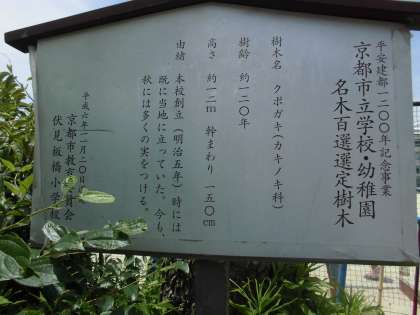 平安建都一二〇〇年記念事業
京都市立学校・幼稚園
名木百選選定樹木
樹木名　クボガキ（カキノキ科）
樹齢　約一二〇年
高さ　約一二m　幹まわり　一五〇cm
由緒　本校創立（明治五年）時には
既に当地に立っていた。今も、
秋には多くの実をつける。
平成六年一一月二〇日
京都市教育委員会
伏見板橋小学校